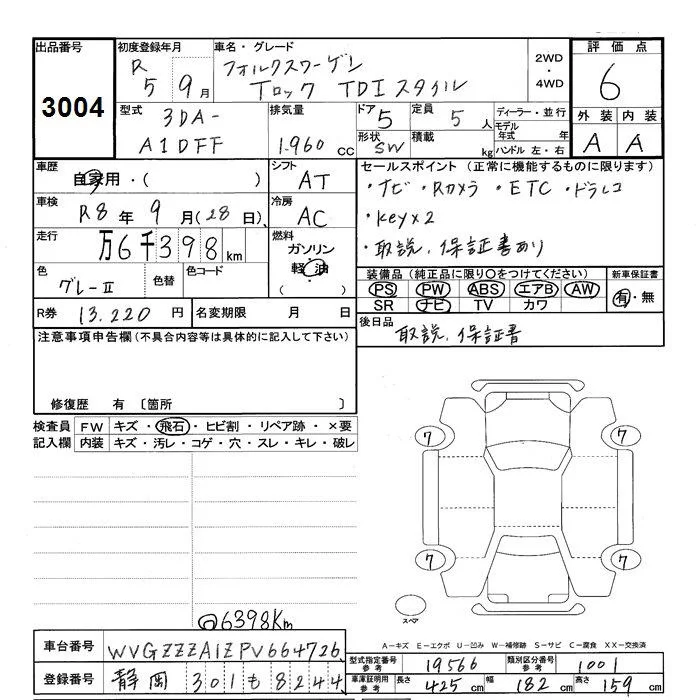 出品番号 初度登録年月 車名・グレード 2WD・4WD 評価点
3004 R5 9月 フォルクスワーゲン Tロック TDIスタイル 6
型式 3DA-A1DFF 排気量 1.960cc ドア 5 定員 5人 ディーラー・並行
形状 SW 積載 kg モデル年式 年 ハンドル 左・右
外装 内装
A A
車歴 自家用・( ) シフト AT
車検 R8年9月(28日) 冷房 AC
走行 万6千398km 燃料 ガソリン 軽油 ( )
色 グレーⅡ 色替 色コード
R券 13.220円 名変期限 月 日
セールスポイント(正常に機能するものに限ります)
・ナビ・Rカメラ・ETC・ドラレコ
・Key×2
・取説、保証書あり
装備品(純正品に限り○をつけてください) 新車保証書
PS PW ABS エアB AW 有・無
SR ナビ TV カワ
後日品 取説、保証書
注意事項申告欄(不具合内容等は具体的に記入して下さい)
修復歴 有〔箇所 〕
検査員記入欄 FW キズ・飛石・ヒビ割・リペア跡・×要
内装 キズ・汚レ・コゲ・穴・スレ・キレ・破レ
7 7
7 7
スペア
6398Km
A−キズ E−エクボ U−凹み W−補修跡 S−サビ C−腐食 XX−交換済
車台番号 WVGZZZA1ZPV664726
登録番号 静岡 301 も 8244
型式指定番号 参考 19566 類別区分番号 参考 1001
車庫証明用 参考 長さ 425cm 幅 182cm 高さ 159cm